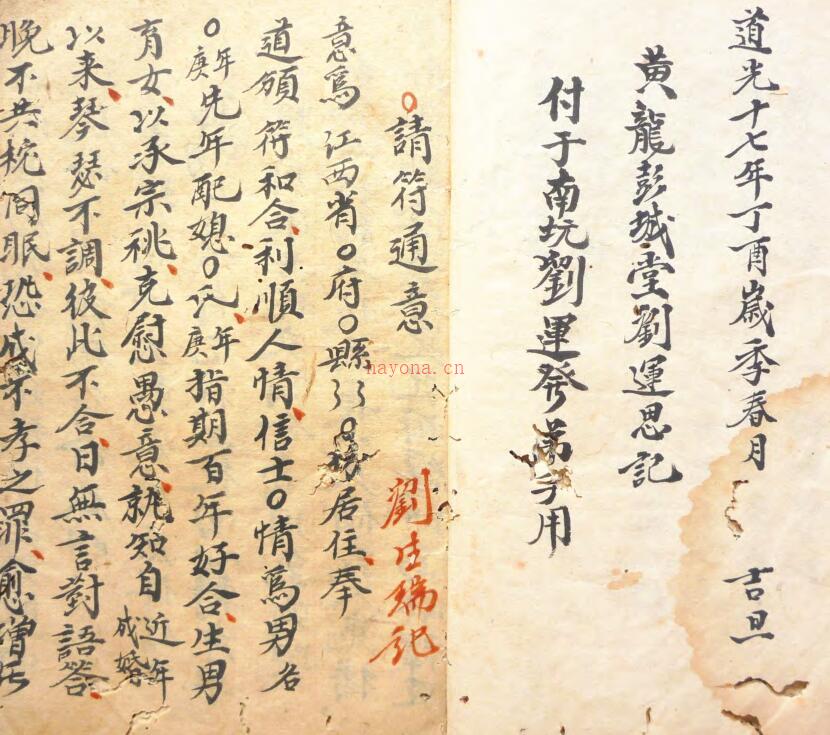 道光十七年丁酉歲季春月 吉旦
黃龍彭城堂劉運思記
付于南坑劉運發弟子用
○請符通意
劉生瑞記
意爲江西省○府○縣〻〻○居住奉
道領符和合利順人情信士○情爲男名
○年庚先年配媳○氏年庚指期百年好合生男
育女以承宗祧克慰愚意就知自近年成婚
以来琴瑟不調彼此不合日無言對語答
晚不共枕同眠恐成不孝之罪愈增
hayona.cn